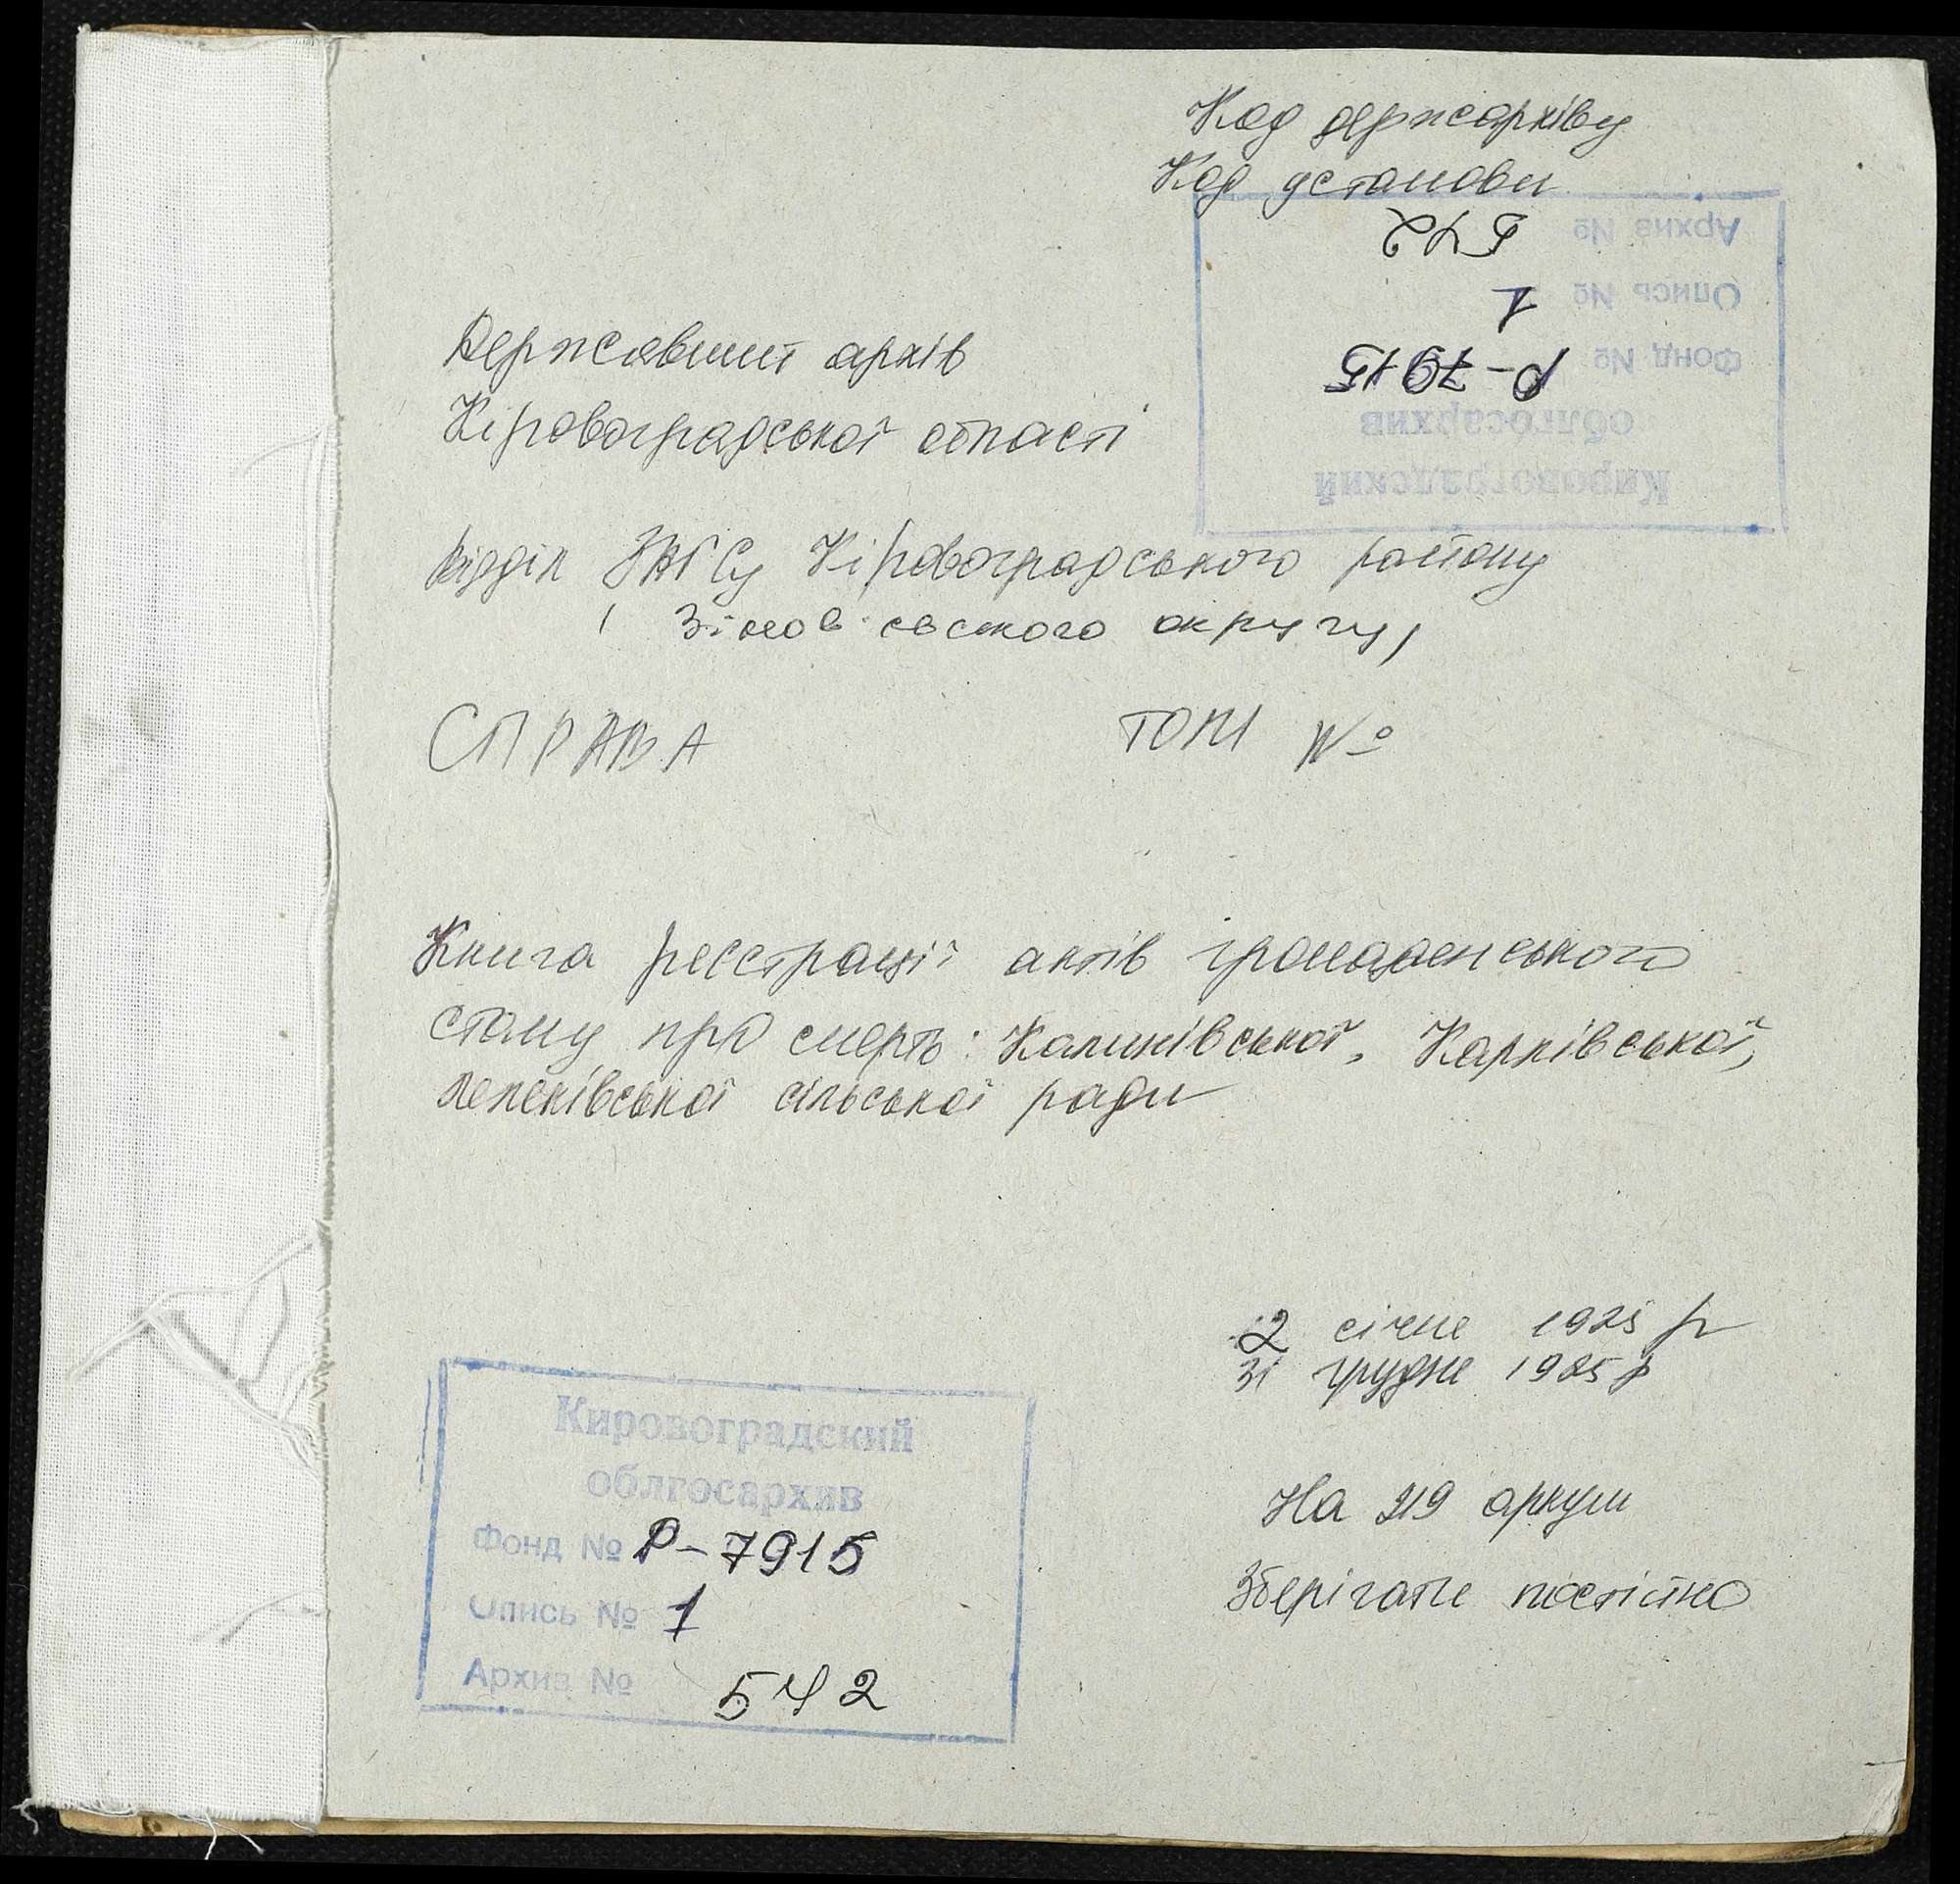 Код держархіву
Код установи
Архив № 542
Опись № 1
Фонд № Р-7915
облгосархив
Кировоградский
Державний архів
Кіровоградської області
Відділ ЗАГСу Кіровоградського району
( Зінов'євського округу)
СПРАВА ТОМ №
Книга реєстрації актів громадянського
стану про смерть: Калинівської, Карлівської,
Лелеківської сільської ради
2 січня 1925 р
31 грудня 1925 р
На 219 аркуш
Зберігати постійно
Кировоградский
облгосархив
Фонд № Р-7915
Опись № 1
Архив № 542